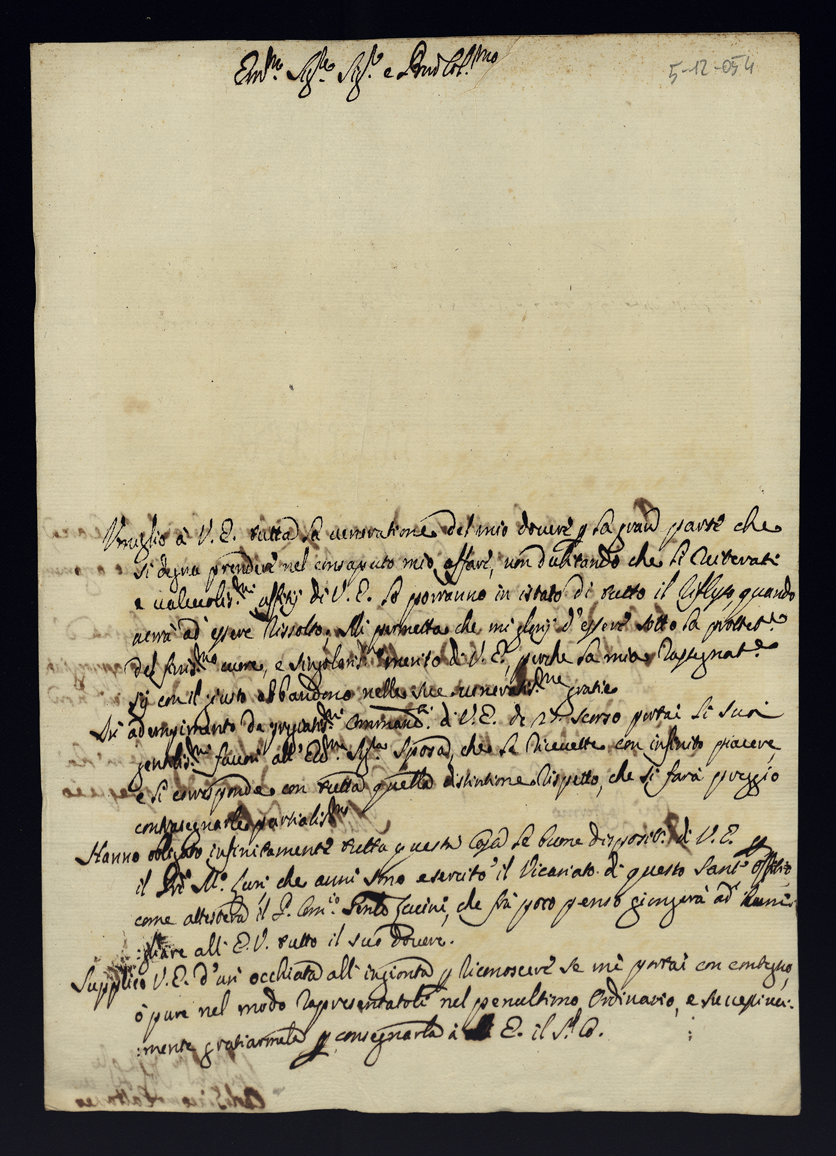 Em.mo Sig.re Sig.r e Pron Col.mo
5-12-054
Umiglio à V. E. tutta la veneratione del mio dovere p la gran parte che
si degna prendere nel consaputo mio affare, non dubitando che li reiterati
e valevoliss.mi uffitij di V. E. lo porranno in istato di tutto il riflesso, quando
averà ad essere rissolto. Mi permetta che mi glorij d'essere sotto la protet.e
del cuore, e singolariss.o merito di V. E., perche la mia rassegnat.e
sij con il giusto abbandono nelle sue veneratiss.me gratie
In adempimento de pregiatiss.mi Command.ti di V. E. de 27 scorso portai li suoi
gentiliss.mi favori all' Ecc.ma Sig.ra Sposa, che le ricevette con infinito piacere,
e si corrisponde con tutta quella distintione rispetto, che si farà preggio
contrasegnarle partialiss.mo
Hanno obligato infinitamente tutta questa Casa le buone dispositi. di V. E. p
il Pré M.o Luri che anni sono esercitò il Vicariato di questo Sant' Offitio
come attesterà il P. Com.rio Lucini, che frà poco penso giongerà ad umi-
gliare all' E. V. tutto il suo dovere.
Supplico V. E. d'un occhiata all' ingionta p riconoscere se mi portai con contegno,
ò pure nel modo rapresentatole nel penultimo Ordinario, e successiva:
:mente gratiarmela p consegnarla à E. il S.r C.